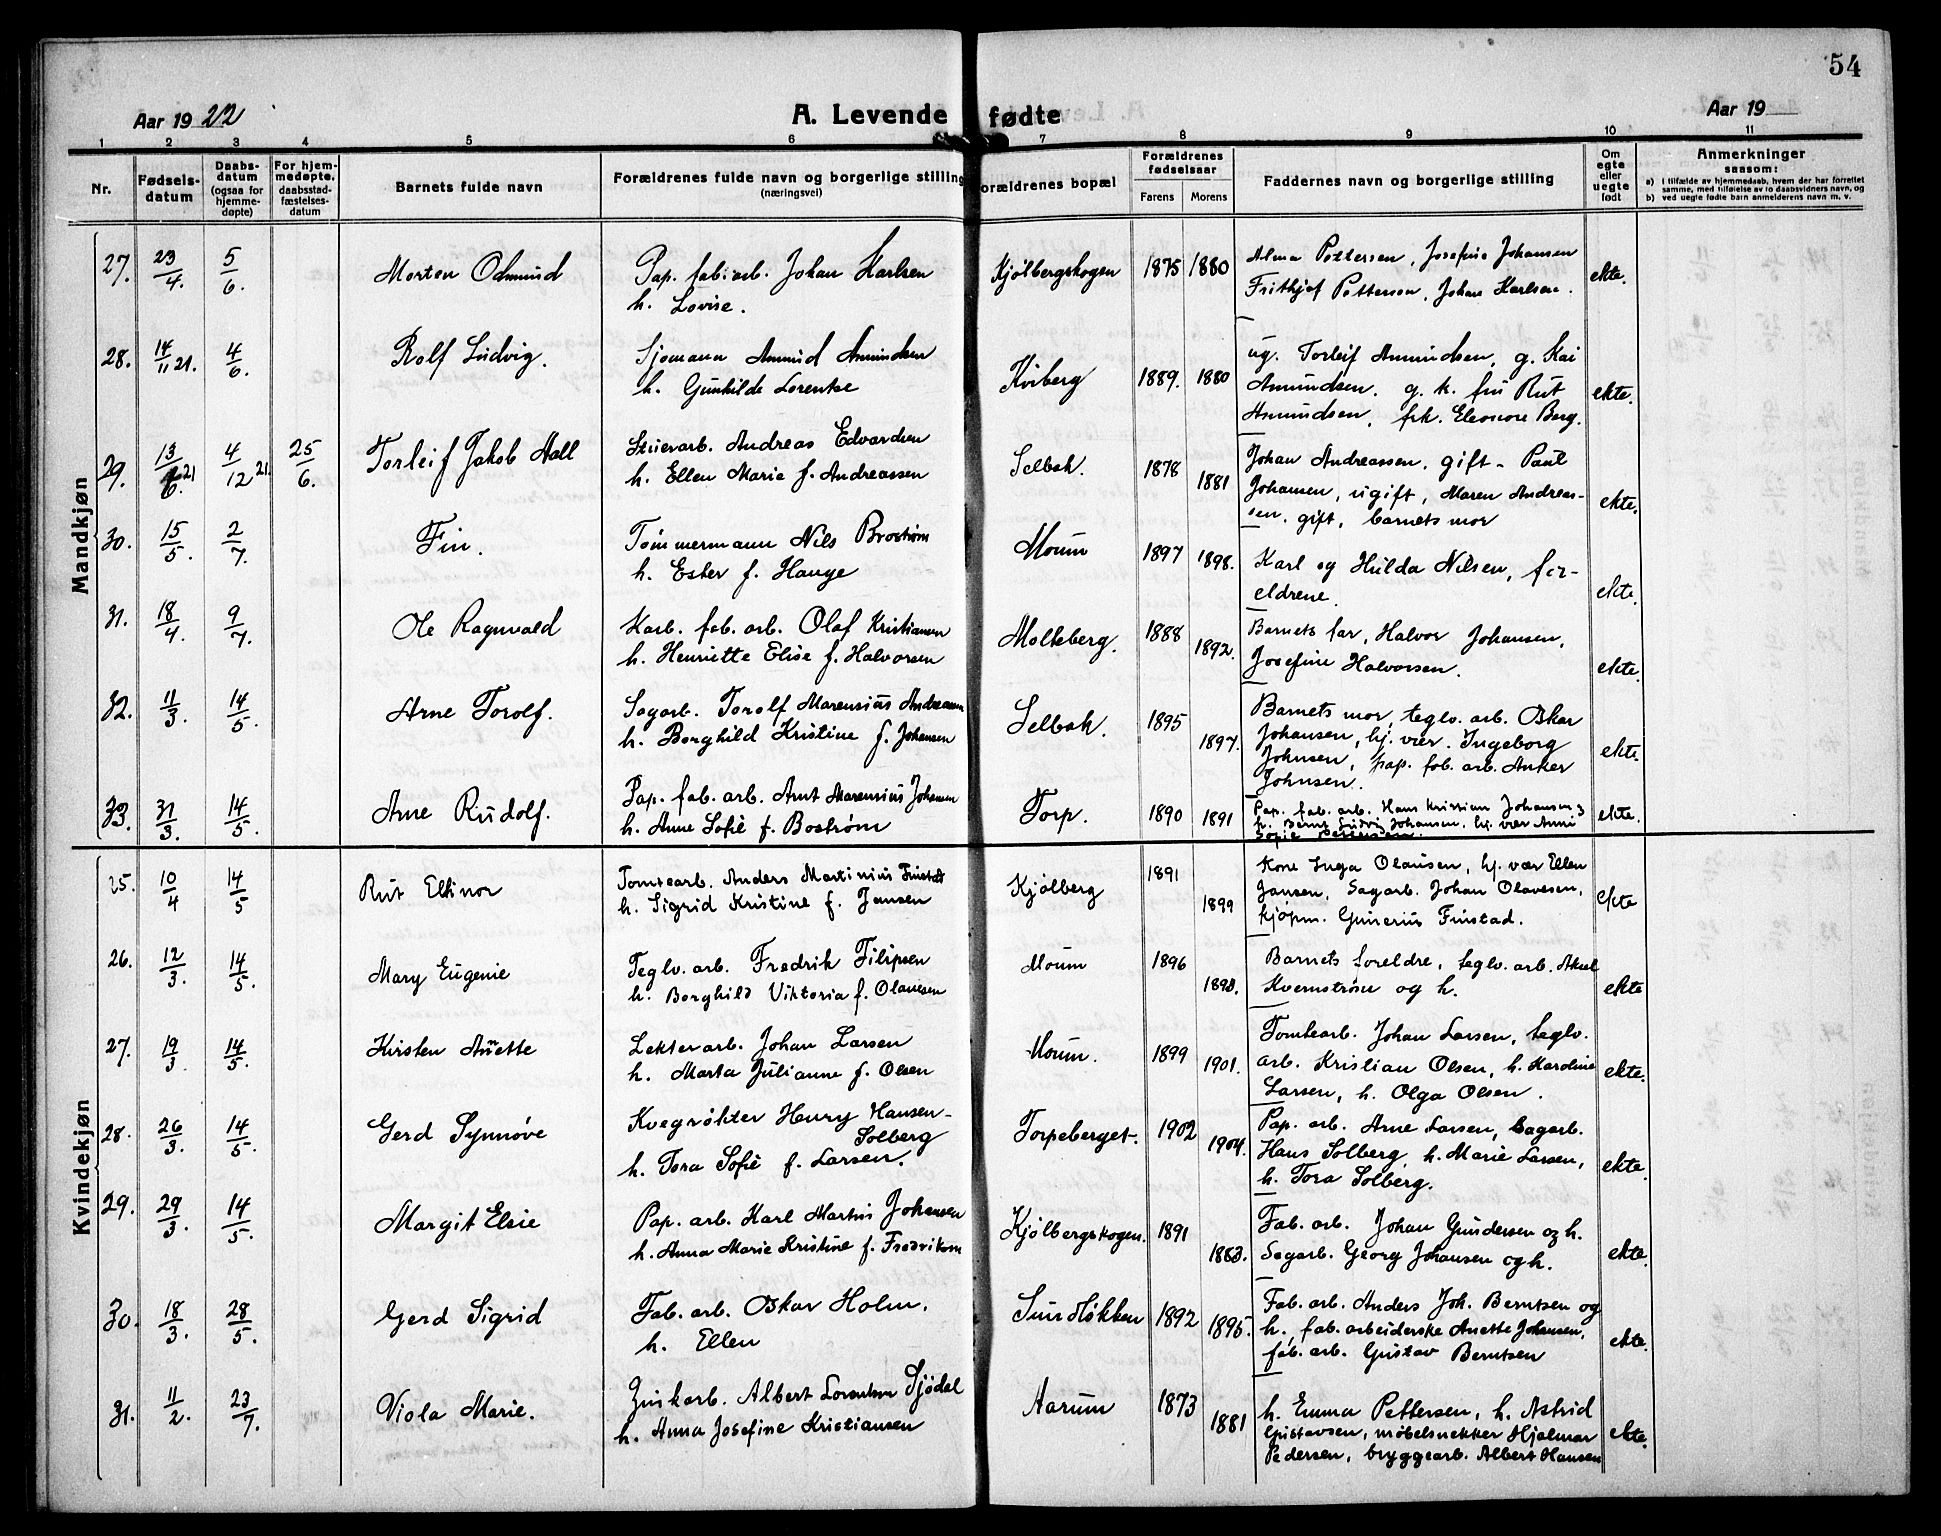 54
Aar 1922
A. Levende fødte
Aar 19
1 2 3 4 5 6 7 8 9 10 11
Nr.
Fødsels-
datum
Daabs-
datum
(ogsaa for
hjemme-
døpte)
For hjem-
medøpte.
daabsstad-
fæstelses-
datum
Barnets fulde navn
Forældrenes fulde navn og borgerlige stilling
(næringsvei)
orældrenes bopæl
Forældrenes
fødselsaar
Farens Morens
Faddernes navn og borgerlige stilling
Om
egte
eller
uegte
født
Anmerkninger
saasom:
a) i tilfælde av hjemmedaab, hvem der har forrettet
samme, med tilføielse av to daabsvidners navn, og
b) ved uegte fødte barn anmelderens navn m. v.
Mandkjøn
27. 23/4. 5/6. Morten Odmund
Pap. fab. arb. Johan Karlsen
h. Lovise.
Kjølbergskogen 1875 1880
Alma Pettersen, Josefine Johansen
Frithjof Pettersen, Johan Karlsen.
ekte.
28. 14/11 21. 4/6. Rolf Ludvig.
Sjømann Amund Amundsen
h. Gunhilde Lorentse
Kviberg 1889. 1880
ug. Torleif Amundsen, g. Kai
Amundsen. g. k. fru Rut
Amundsen, frk. Eleonore Berg.
ekte.
29. 13/6. 21 4/12 21. 25/6. Torleif Jakob Hall
Stuerarb. Andreas Edvardsen
h. Ellen Marie f. Andreassen
Selbak. 1878 1881
Johan Andreassen, gift - Paul
Johansen, ugift, Maren Andreas-
sen, gift, barnets mor
ekte.
30. 15/5. 2/7. Fin.
Tømmermann Nils Brostrøm
h. Ester f. Hauge
Moum 1897 1898.
Karl og Hulda Nilsen, for-
eldrene.
ekte.
31. 18/4. 9/7. Ole Ragnvald
Karb. fab. arb. Olaf Kristiansen
h. Henriette Elise f. Halvorsen
Molteberg. 1888 1892.
Barnets far, Halvor Johansen,
Josefine Halvorsen.
ekte.
32. 11/3. 14/5. Arne Torolf.
Sagarb. Torolf Marensius Andreassen
h. Borghild Kristine f. Johansen
Selbak. 1895 1897.
Barnets mor, teglv. arb. Oskar
Johansen, hj. vær. Ingeborg
Johnsen, pap. fab. arb. Anker
Johnsen.
ekte.
33. 31/3. 14/5. Arne Rudolf.
Pap. fab. arb. Arnt Marensius Johansen
h. Anne Sofie f. Bostrøm
Torp. 1890 1891
Pap. fab. arb. Hans Kristian Johansen,
h. Ludvig Johansen, hj. vær Anni
Sofie
ekte.
Kvindekjøn
25. 10/4 14/5 Rut Ellinor
Tomtearb. Anders Martinius Finstad
h. Sigrid Kristine f. Jansen
Kjølberg 1891 1899
Kone Inga Olausen, hj. vær Ellen
Jansen, Sagarb. Johan Olavesen,
kjøpm. Gunerius Finstad.
ekte
26. 12/3. 14/5. Mary Eugenie
Teglv. arb. Fredrik Filipsen
h. Borghild Viktoria f. Olausen
Moum 1896 1898.
Barnets foreldre, teglv. arb. Aksel
Kvernstrøm og h.
ekte
27. 19/3 14/5. Kirsten Anette
Lekterarb. Johan Larsen
h. Marta Julianne f. Olsen
Moum. 1899 1901.
Tomtearb. Johan Larsen, teglv.
arb. Kristian Olsen, h. Kardine
Larsen, h. Olga Olsen.
ekte.
28. 26/3. 14/5. Gerd Synnøve
Kvegrøkter Henry Hansen-
Solberg
h. Tora Sofie f. Larsen.
Torpeberget. 1902 1904.
Pap. arb. Arne Larsen, Sagarb.
Hans Solberg, h. Marie Larsen,
h. Tora Solberg.
ekte.
29. 29/3. 14/5. Margit Elsie
Pap. arb. Karl Martin Johansen
h. Anna Marie Kristine f. Fredriksen
Kjølbergskogen. 1891 1883.
Fab. arb. Johan Gundersen og h.
Sagarb. Georg Johansen og h.
ekte.
30. 18/3. 28/5. Gerd Sigrid
Fab. arb. Oskar Holm.
h. Ellen
Sundløkken 1892 1895.
Fab. arb. Anders Joh. Berntsen og
h., fab. arbeiderske Anette Johansen,
fab. arb. Gustav Berntsen
ekte.
31. 11/2. 23/7. Viola Marie.
Zinkarb. Albert Lorentsen Sjødal
h. Anna Josefine Kristiansen
Aarum 1873 1881
h. Emma Pettersen, h. Astrid
Gustavsen, møbelsnekker Hjalmar
Pedersen, bryggearb. Albert Hansen
ekte.